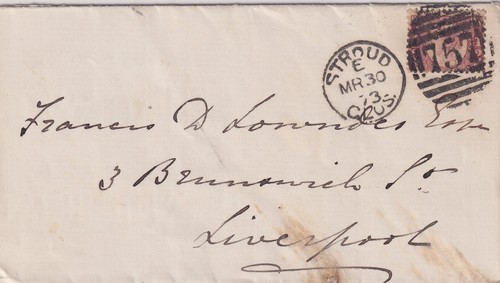 STROUD
E
MR 30
73
757
Francis D Lowndes Esqr
3 Brunswick St
Liverpool